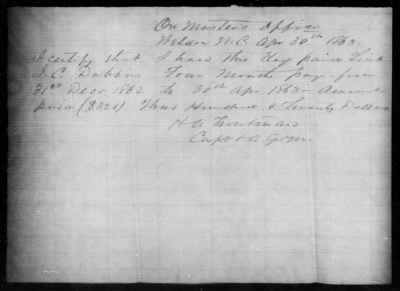 Qr Masters Office
Weldon N.C. Apr 30th 1863
I certify that I have this day paid Lieut
J. C. Dobbin Four Months pay from
31st Decr 1862 to 30th Apr 1863 Amount
paid ($320) Three Hundred & Twenty Dollars
H A
Capt & A.Q.M.